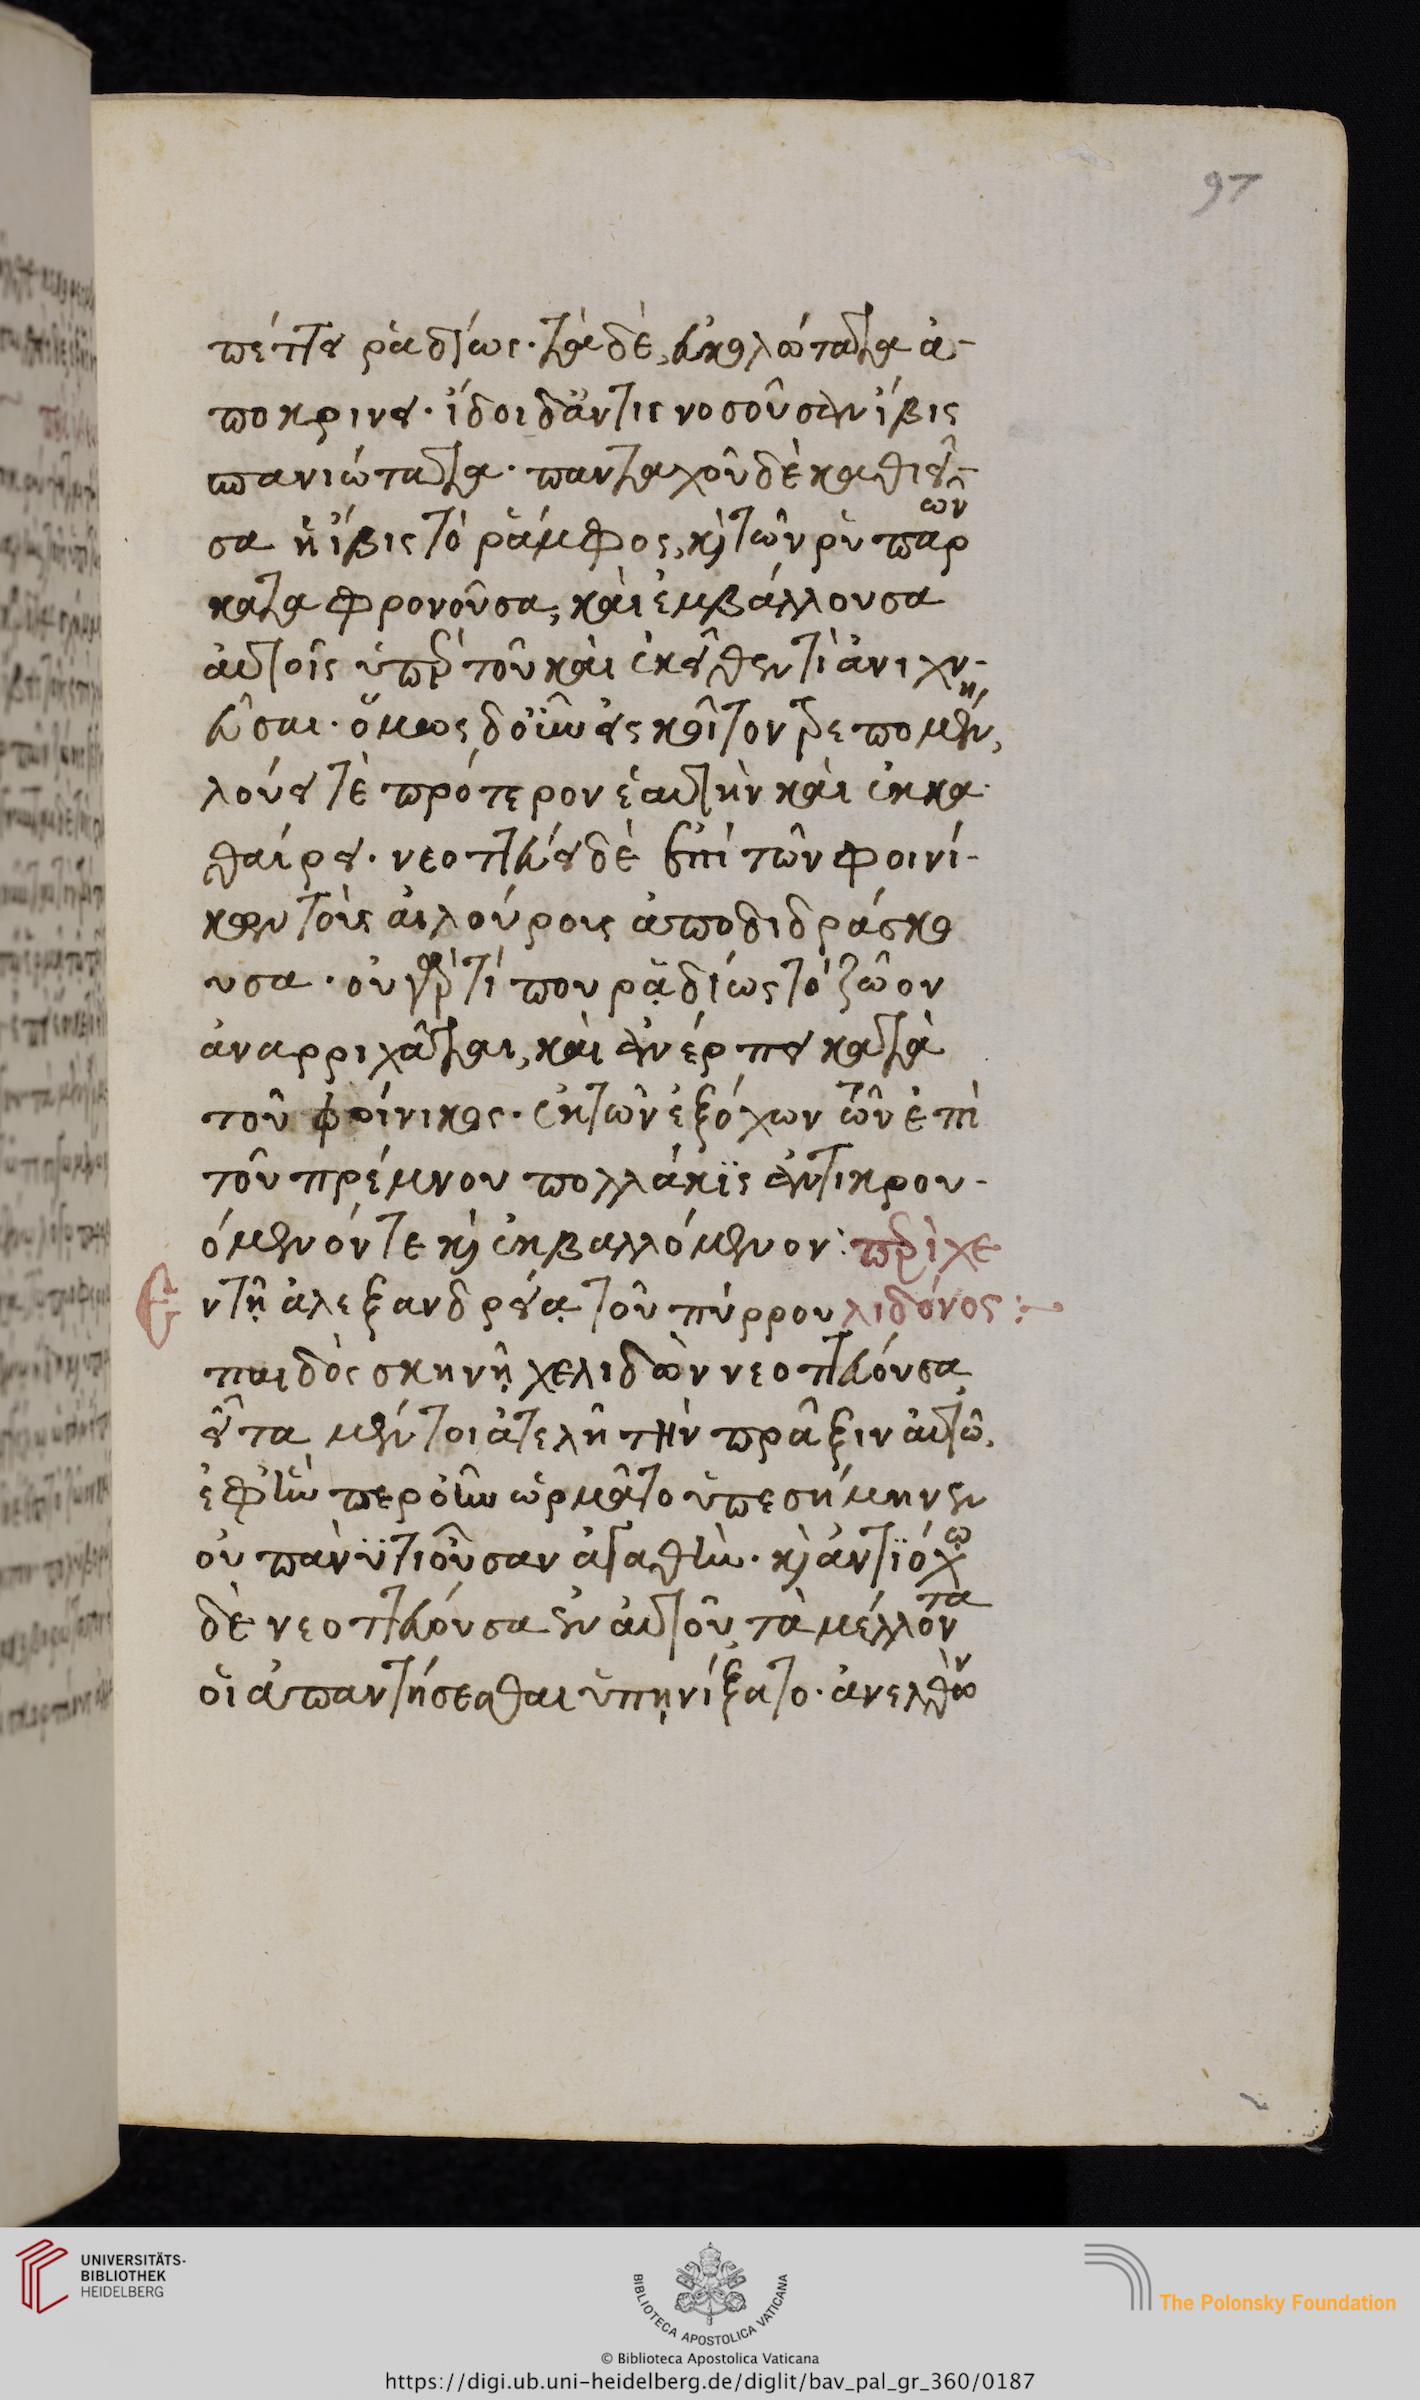 97
πέττει ῥαδίως· τὰ δὲ, εὐκολώτατα ἀ-
ποκρίνει· ἴδοι δ' ἄν τις νοσοῦσαν ἶβιν
σπανιώτατα· πανταχοῦ δὲ καθιεῖ-
σα ἡ ἶβις τὸ ῥάμφος, καὶ τῶν ῥυπαρῶν
καταφρονοῦσα, καὶ ἐμβάλλουσα
αὐτοῖς ὑπὲρ τοῦ καὶ ἐκεῖθέν τι ἀνιχν-
εῦσαι· ὅμως δ' οὖν εἰς κοῖτον τρεπομένη,
λούει τὲ πρότερον ἑαυτὴν καὶ ἐκκα
θαίρει· νεοττεύει δὲ ἐπὶ τῶν φοινί-
κων τοὺς αἰλούρους ἀποδιδράσκο
υσα· οὐ γάρ τί που ῥᾳδίως τὸ ζῶον
ἀναρριχᾶται, καὶ ἀνέρπει κατὰ
τοῦ φοίνικος· ἐκ τῶν ἐξόχων τῶν ἐπὶ
τοῦ πρέμνου πολλάκις ἀντικρου-
όμενόν τε καὶ ἐκβαλλόμενον: περὶ χε
Ἐν τῇ ἀλεξανδρείᾳ τοῦ πύρρου λιδόνος:
παιδὸς σκηνῇ χελιδὼν νεοττεύουσα
εἶτα μέντοι ἀτελῆ τὴν πρᾶξιν αὐτῶ,
ἐφ' ἣν περ οὖν ὡρμᾶτο ὑπεσήμηνεν
οὐ πάνυ τι οὖσαν ἀγαθήν· καὶ ἀντιόχῳ
δὲ νεοττεύουσα ἐν αὐτοῦ, τὰ μέλλοντα
οἱ ἀπαντήσεσθαι ὑπῃνίξατο· ἀνελθὼν
UNIVERSITÄTS-
BIBLIOTHEK
HEIDELBERG
BIBLIOTECA APOSTOLICA VATICANA
The Polonsky Foundation
© Biblioteca Apostolica Vaticana
https://digi.ub.uni-heidelberg.de/diglit/bav_pal_gr_360/0187